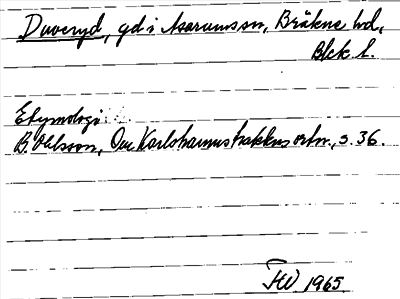 Duveryd, gd i Asarums sn, Bräkne hd,
Blek l.
Etymologi:
B. Ohlsson, Om Karlshamnstraktens ortn., s. 36.
1965